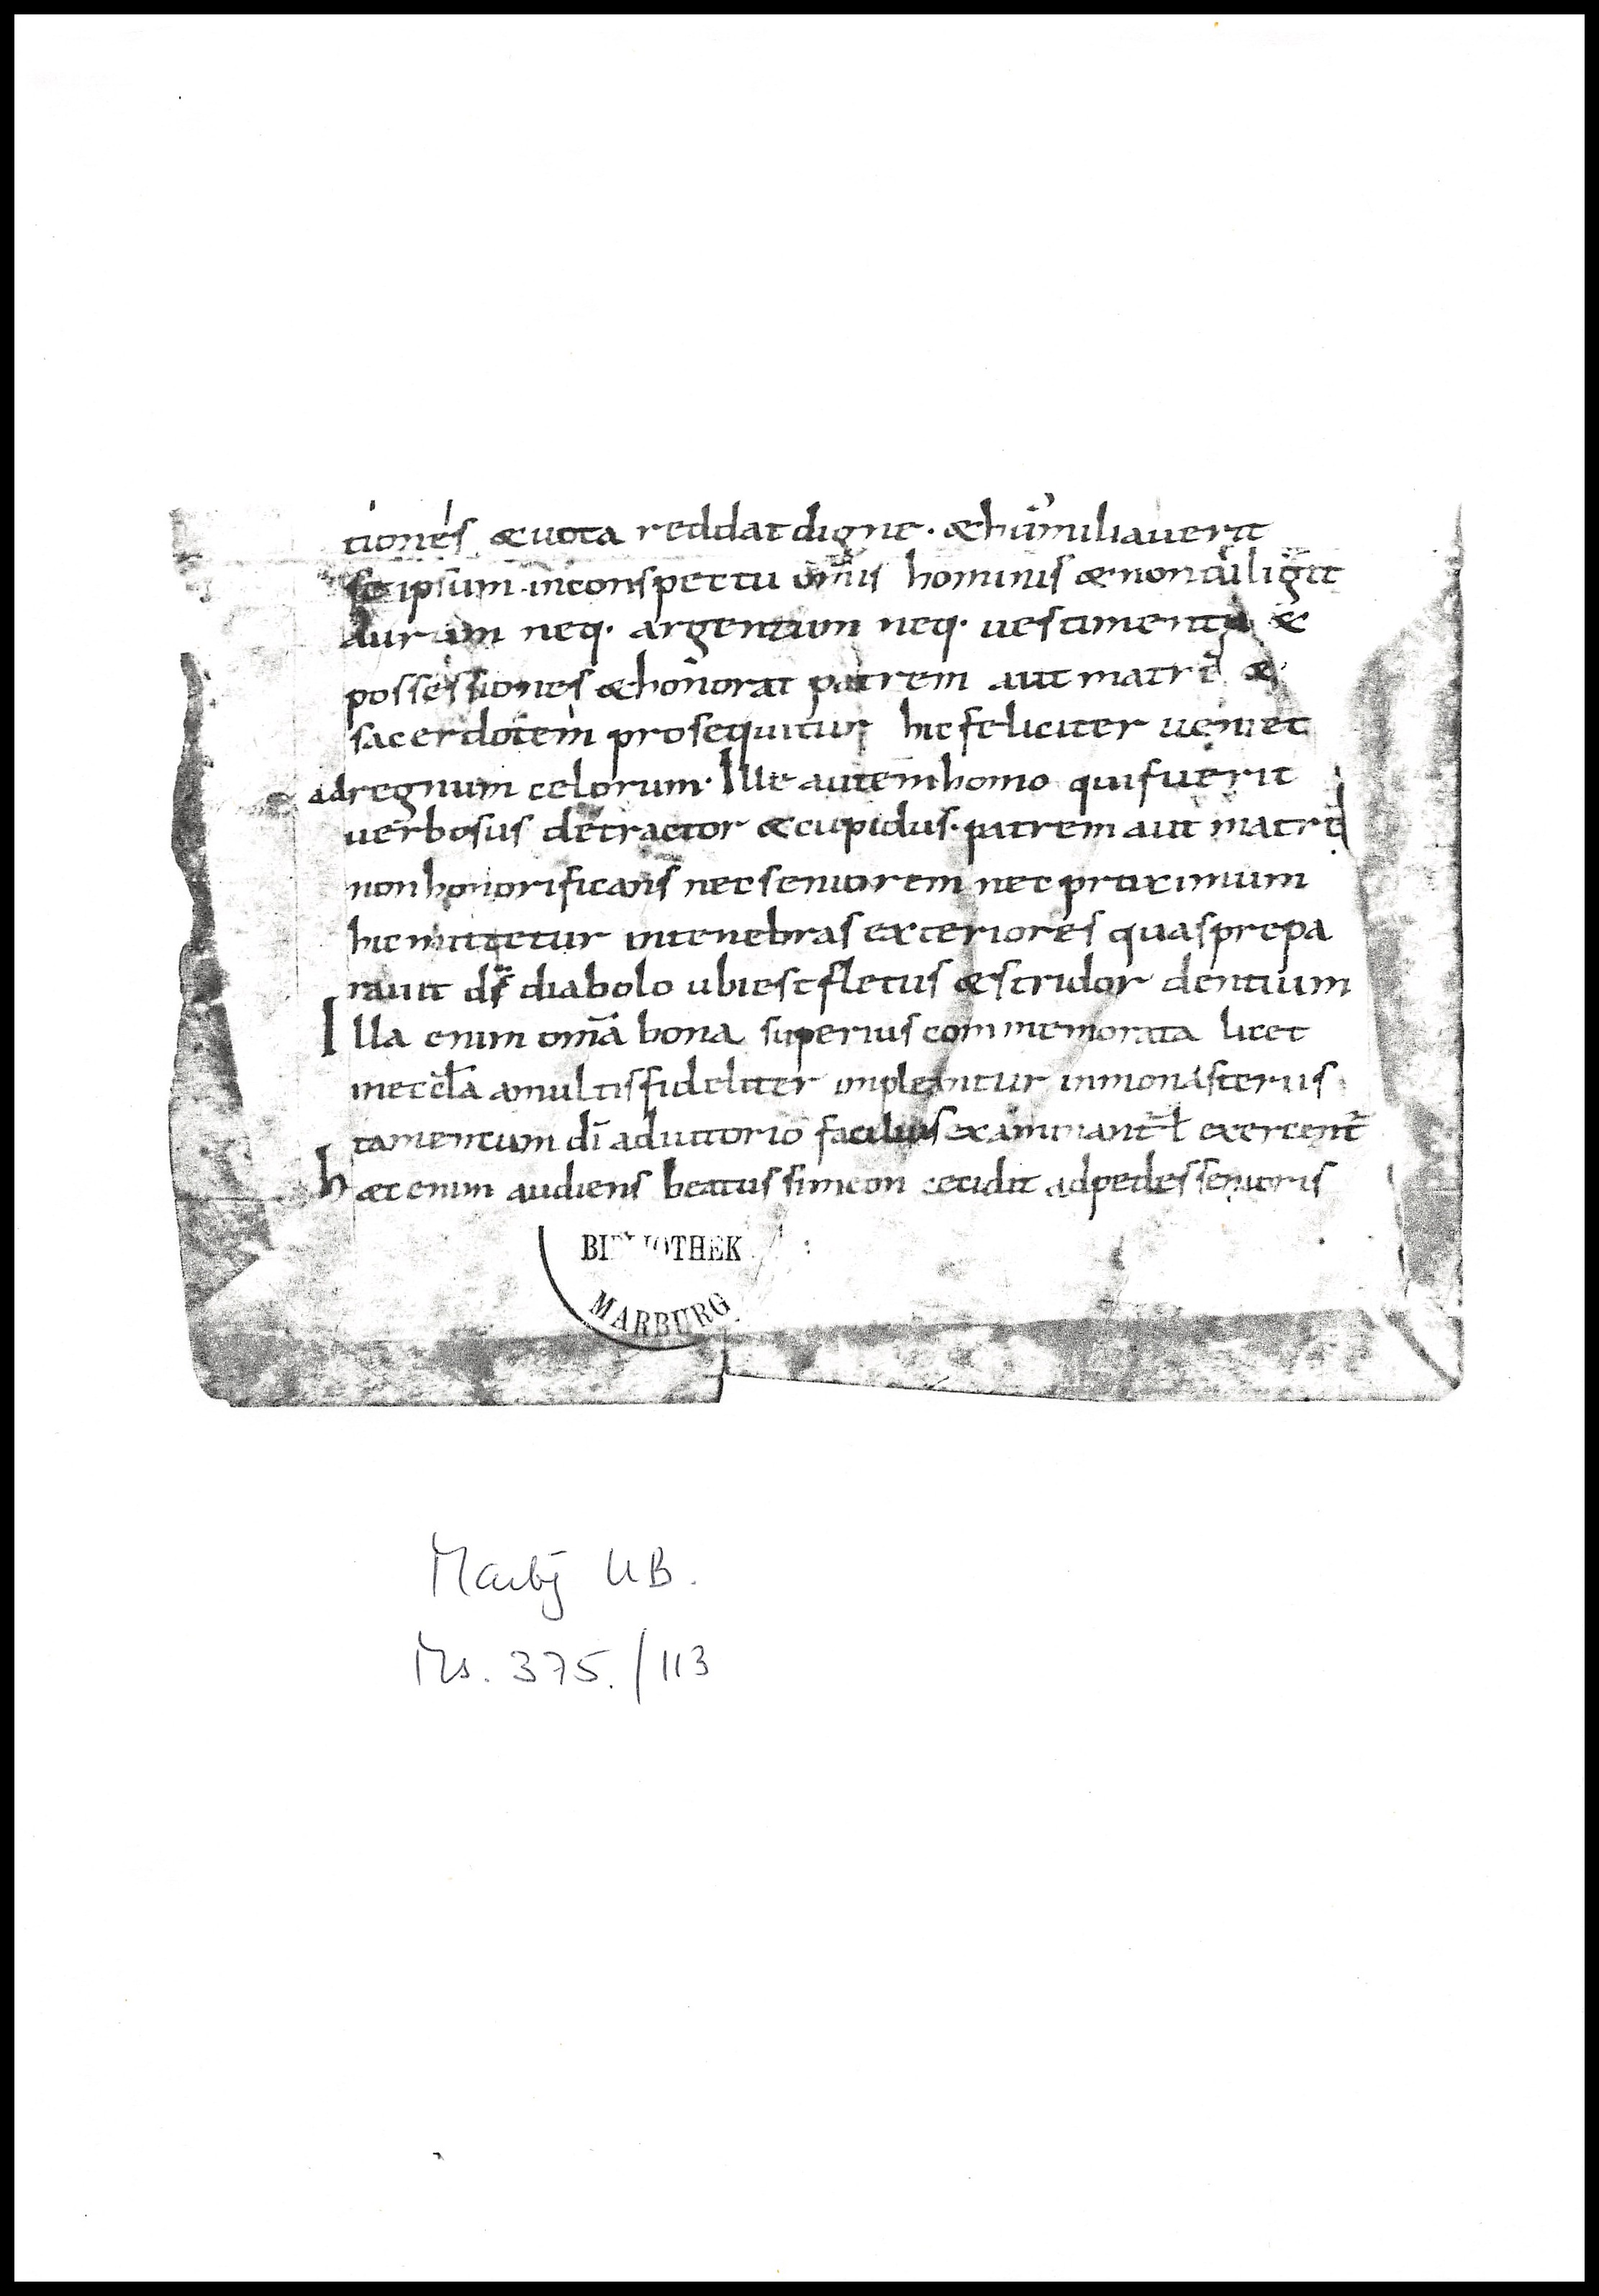 tiones &uota reddat digne · &humiliauerit
seipsum inconspectu om̄is hominis &non diligit
aurum neq· argentum neq· uestimenta &
possessiones &honorat patrem aut matrē &
sacerdotem prosequitur hic feliciter ueniet
adregnum celorum· Ille autem homo quifuerit
uerbosus detractor &cupidus· patrem aut matrē
non honorificans nec seniorem nec proximum
hic mittetur intenebras exteriores quasprepa
rauit ds̄ diabolo ubiest fletus &stridor dentium
Illa enim om̄a bona superius commemorata licet
inecc̄la amultis fideliter impleantur inmonasteriis
tamen cum dī adiutorio facilius examinant̄ ł exercent̄
haec enim audiens beatus simeon cecidit adpedes senioris
BIBLIOTHEK
MARBURG
Marbg UB.
Ms. 375./113